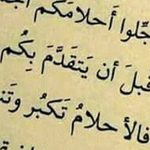 جِّلوا أحلامكم
قبلَ أن يَتقدَّمَ بِكُم
فالأحلامُ تَكبُر